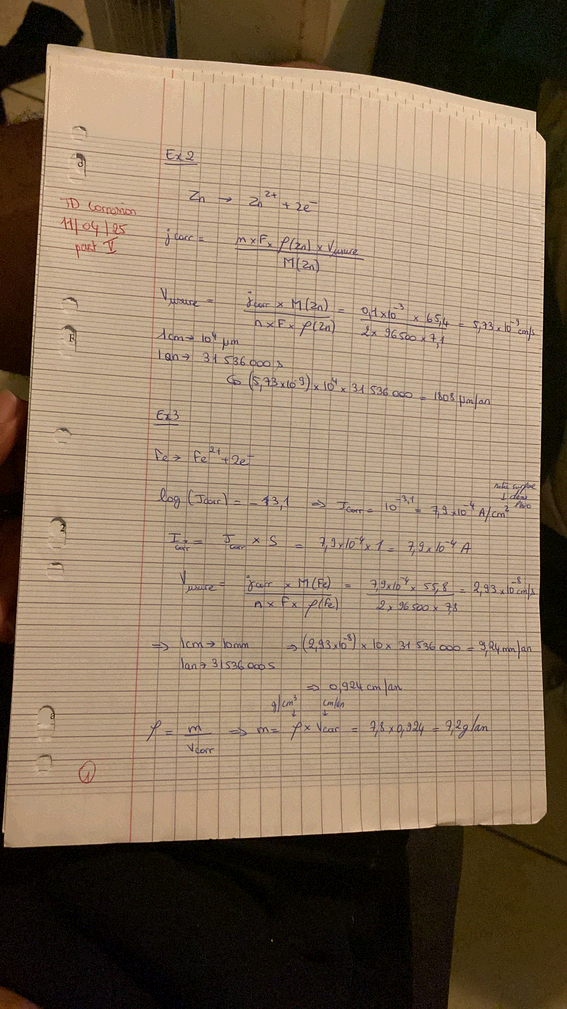 Ex 2
TD Corrosion
11/04/25
part V
Zn → Zn²⁺ + 2e⁻
jcorr = (n × F × ρ(Zn) × Vusure) / M(Zn)
Vusure = (jcorr × M(Zn)) / (n × F × ρ(Zn)) = (0,1 × 10⁻³ × 65,4) / (2 × 96500 × 7,1) = 5,73 × 10⁻⁹ cm/s
1cm → 10⁴ μm
1an → 31 536 000 s
↳ (5,73 × 10⁻⁹) × 10⁴ × 31 536 000 = 1808 μm/an
Ex 3
Fe → Fe²⁺ + 2e⁻
log (Jcorr) = -3,1 ⇒ Jcorr = 10⁻³,¹ = 7,9 × 10⁻⁴ A/cm²
↓ dans
Icorr = Jcorr × S = 7,9 × 10⁻⁴ × 1 = 7,9 × 10⁻⁴ A
Vusure = (jcorr × M(Fe)) / (n × F × ρ(Fe)) = (7,9 × 10⁻⁴ × 55,8) / (2 × 96500 × 7,8) = 2,93 × 10⁻⁸ cm/s
⇒ 1cm → 10mm ⇒ (2,93 × 10⁻⁸) × 10 × 31 536 000 = 9,24 mm/an
1an → 31 536 000 S
⇒ 0,924 cm/an
g/cm³ cm/an
ρ = m / Vcorr ⇒ m = ρ × Vcorr = 7,8 × 0,924 = 7,2 g/an
1